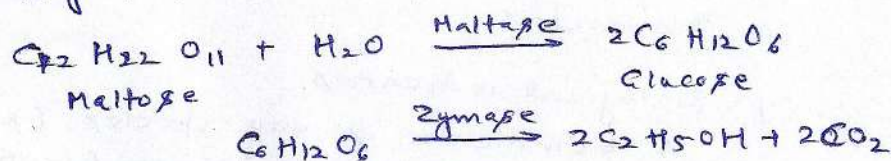 C12 H22 O11 + H2O Maltase → 2C6 H12O6
Maltose Glucose
C6H12O6 Zymase → 2C2H5OH + 2CO2